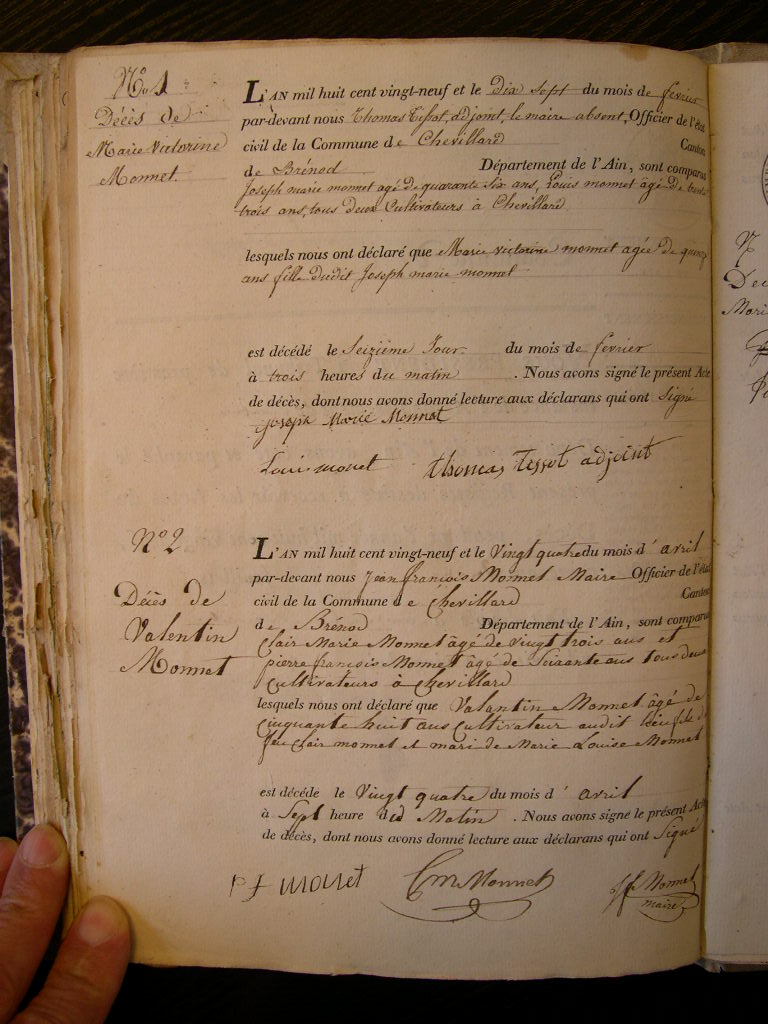 N.o 1
Décès de
Marie Victorine
Monnet.
L'AN mil huit cent vingt-neuf et le Dix Sept du mois de fevrier
par-devant nous Thomas Tissot, adjoint, le maire absent, Officier de l'état
civil de la Commune de Chevillard Canton
de Brénod Département de l'Ain, sont comparus
Joseph marie monnet agé de quarante Six ans, Louis monnet âgé de trente
trois ans, tous deux Cultivateurs à Chevillard
lesquels nous ont déclaré que Marie victorine monnet agée de quinze
ans fille dudit Joseph marie monnet
est décédé le Seizième Jour du mois de fevrier
à trois heures du matin. Nous avons signé le présent Acte
de décès, dont nous avons donné lecture aux déclarans qui ont Signé
Joseph Marie Monnet
Louis monet thomas Tissot adjoint
N.o 2
Décès de
Valentin
Monnet
L'AN mil huit cent vingt-neuf et le Vingt quatre du mois d' avril
par-devant nous Jean françois Monnet Maire Officier de l'état
civil de la Commune de Chevillard Canton
de Brénod Département de l'Ain, sont comparus
Clair Marie Monnet âgé de vingt trois ans et
pierre françois Monnet âgé de Soixante ans tous deux
Cultivateurs à Chevillard
lesquels nous ont déclaré que Valantin Monnet âgé de
Cinquante huit ans Cultivateur audit lieu fils de
feu Clair monnet et mari de Marie Louise Monnet
est décéde le Vingt quatre du mois d' avril
à Sept heure du Matin. Nous avons signé le présent Acte
de décès, dont nous avons donné lecture aux déclarans qui ont Signé
P f monet Cm Monnet Jf Monnet
maire
N
Marie